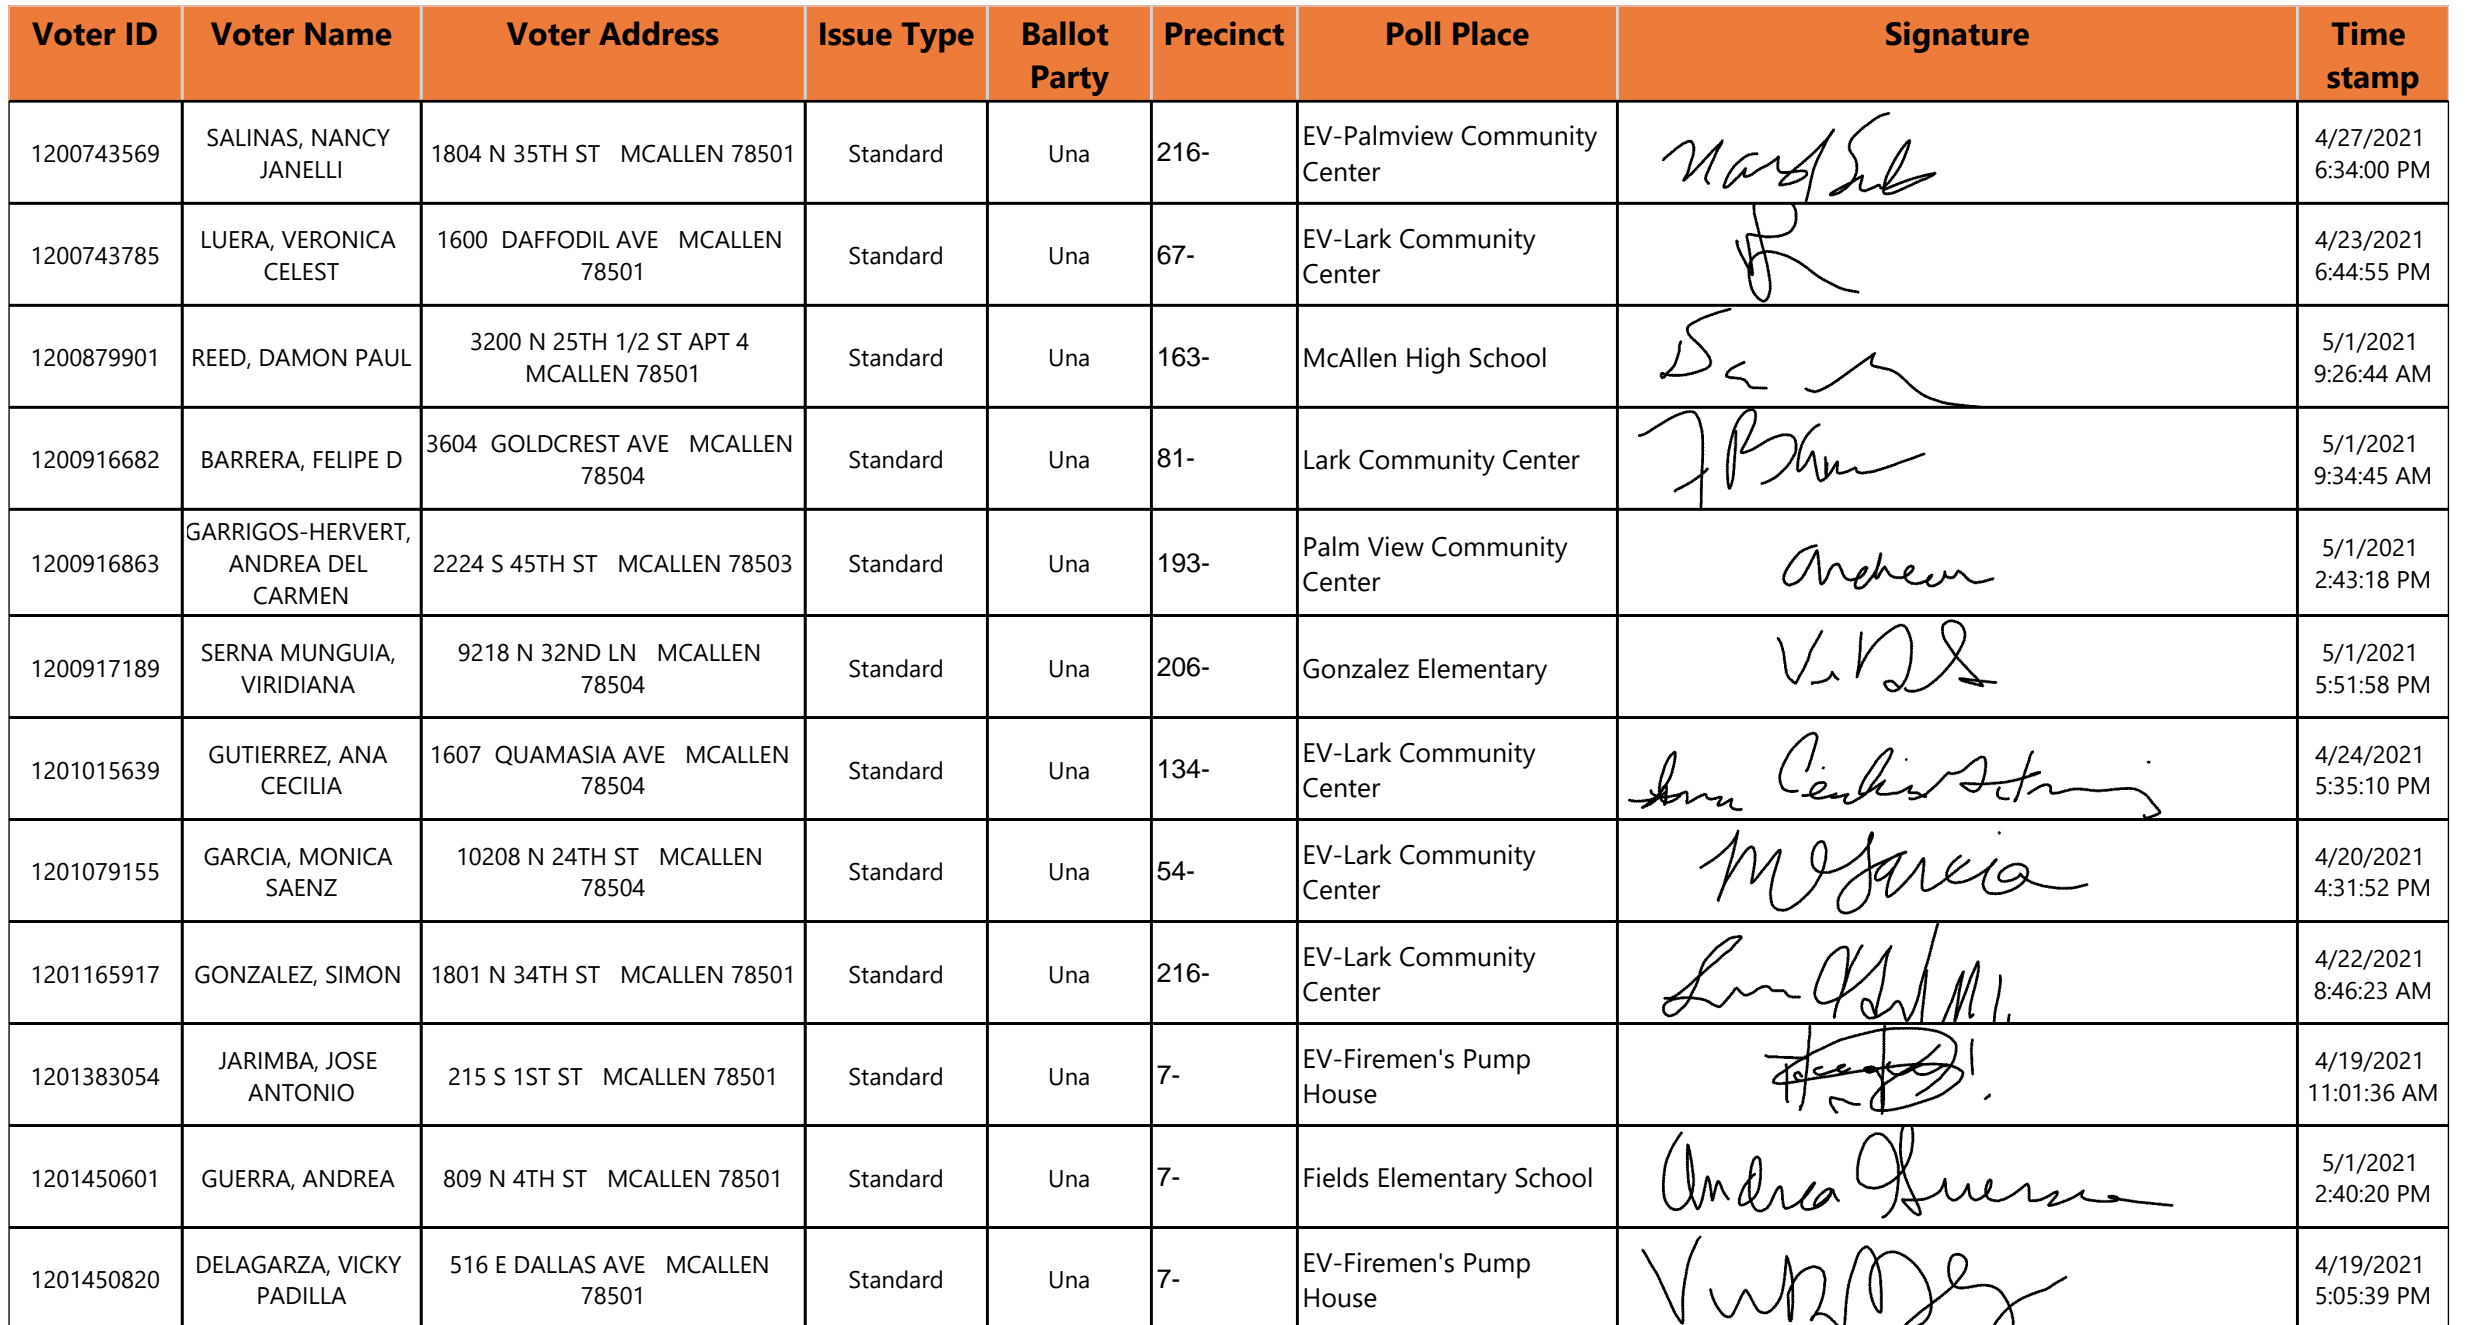 Voter ID Voter Name Voter Address Issue Type Ballot Party Precinct Poll Place Signature Time stamp
1200743569 SALINAS, NANCY JANELLI 1804 N 35TH ST MCALLEN 78501 Standard Una 216- EV-Palmview Community Center 4/27/2021 6:34:00 PM
1200743785 LUERA, VERONICA CELEST 1600 DAFFODIL AVE MCALLEN 78501 Standard Una 67- EV-Lark Community Center 4/23/2021 6:44:55 PM
1200879901 REED, DAMON PAUL 3200 N 25TH 1/2 ST APT 4 MCALLEN 78501 Standard Una 163- McAllen High School 5/1/2021 9:26:44 AM
1200916682 BARRERA, FELIPE D 3604 GOLDCREST AVE MCALLEN 78504 Standard Una 81- Lark Community Center 5/1/2021 9:34:45 AM
1200916863 GARRIGOS-HERVERT, ANDREA DEL CARMEN 2224 S 45TH ST MCALLEN 78503 Standard Una 193- Palm View Community Center 5/1/2021 2:43:18 PM
1200917189 SERNA MUNGUIA, VIRIDIANA 9218 N 32ND LN MCALLEN 78504 Standard Una 206- Gonzalez Elementary 5/1/2021 5:51:58 PM
1201015639 GUTIERREZ, ANA CECILIA 1607 QUAMASIA AVE MCALLEN 78504 Standard Una 134- EV-Lark Community Center 4/24/2021 5:35:10 PM
1201079155 GARCIA, MONICA SAENZ 10208 N 24TH ST MCALLEN 78504 Standard Una 54- EV-Lark Community Center M Garcia 4/20/2021 4:31:52 PM
1201165917 GONZALEZ, SIMON 1801 N 34TH ST MCALLEN 78501 Standard Una 216- EV-Lark Community Center 4/22/2021 8:46:23 AM
1201383054 JARIMBA, JOSE ANTONIO 215 S 1ST ST MCALLEN 78501 Standard Una 7- EV-Firemen's Pump House 4/19/2021 11:01:36 AM
1201450601 GUERRA, ANDREA 809 N 4TH ST MCALLEN 78501 Standard Una 7- Fields Elementary School Andrea Guerra 5/1/2021 2:40:20 PM
1201450820 DELAGARZA, VICKY PADILLA 516 E DALLAS AVE MCALLEN 78501 Standard Una 7- EV-Firemen's Pump House 4/19/2021 5:05:39 PM